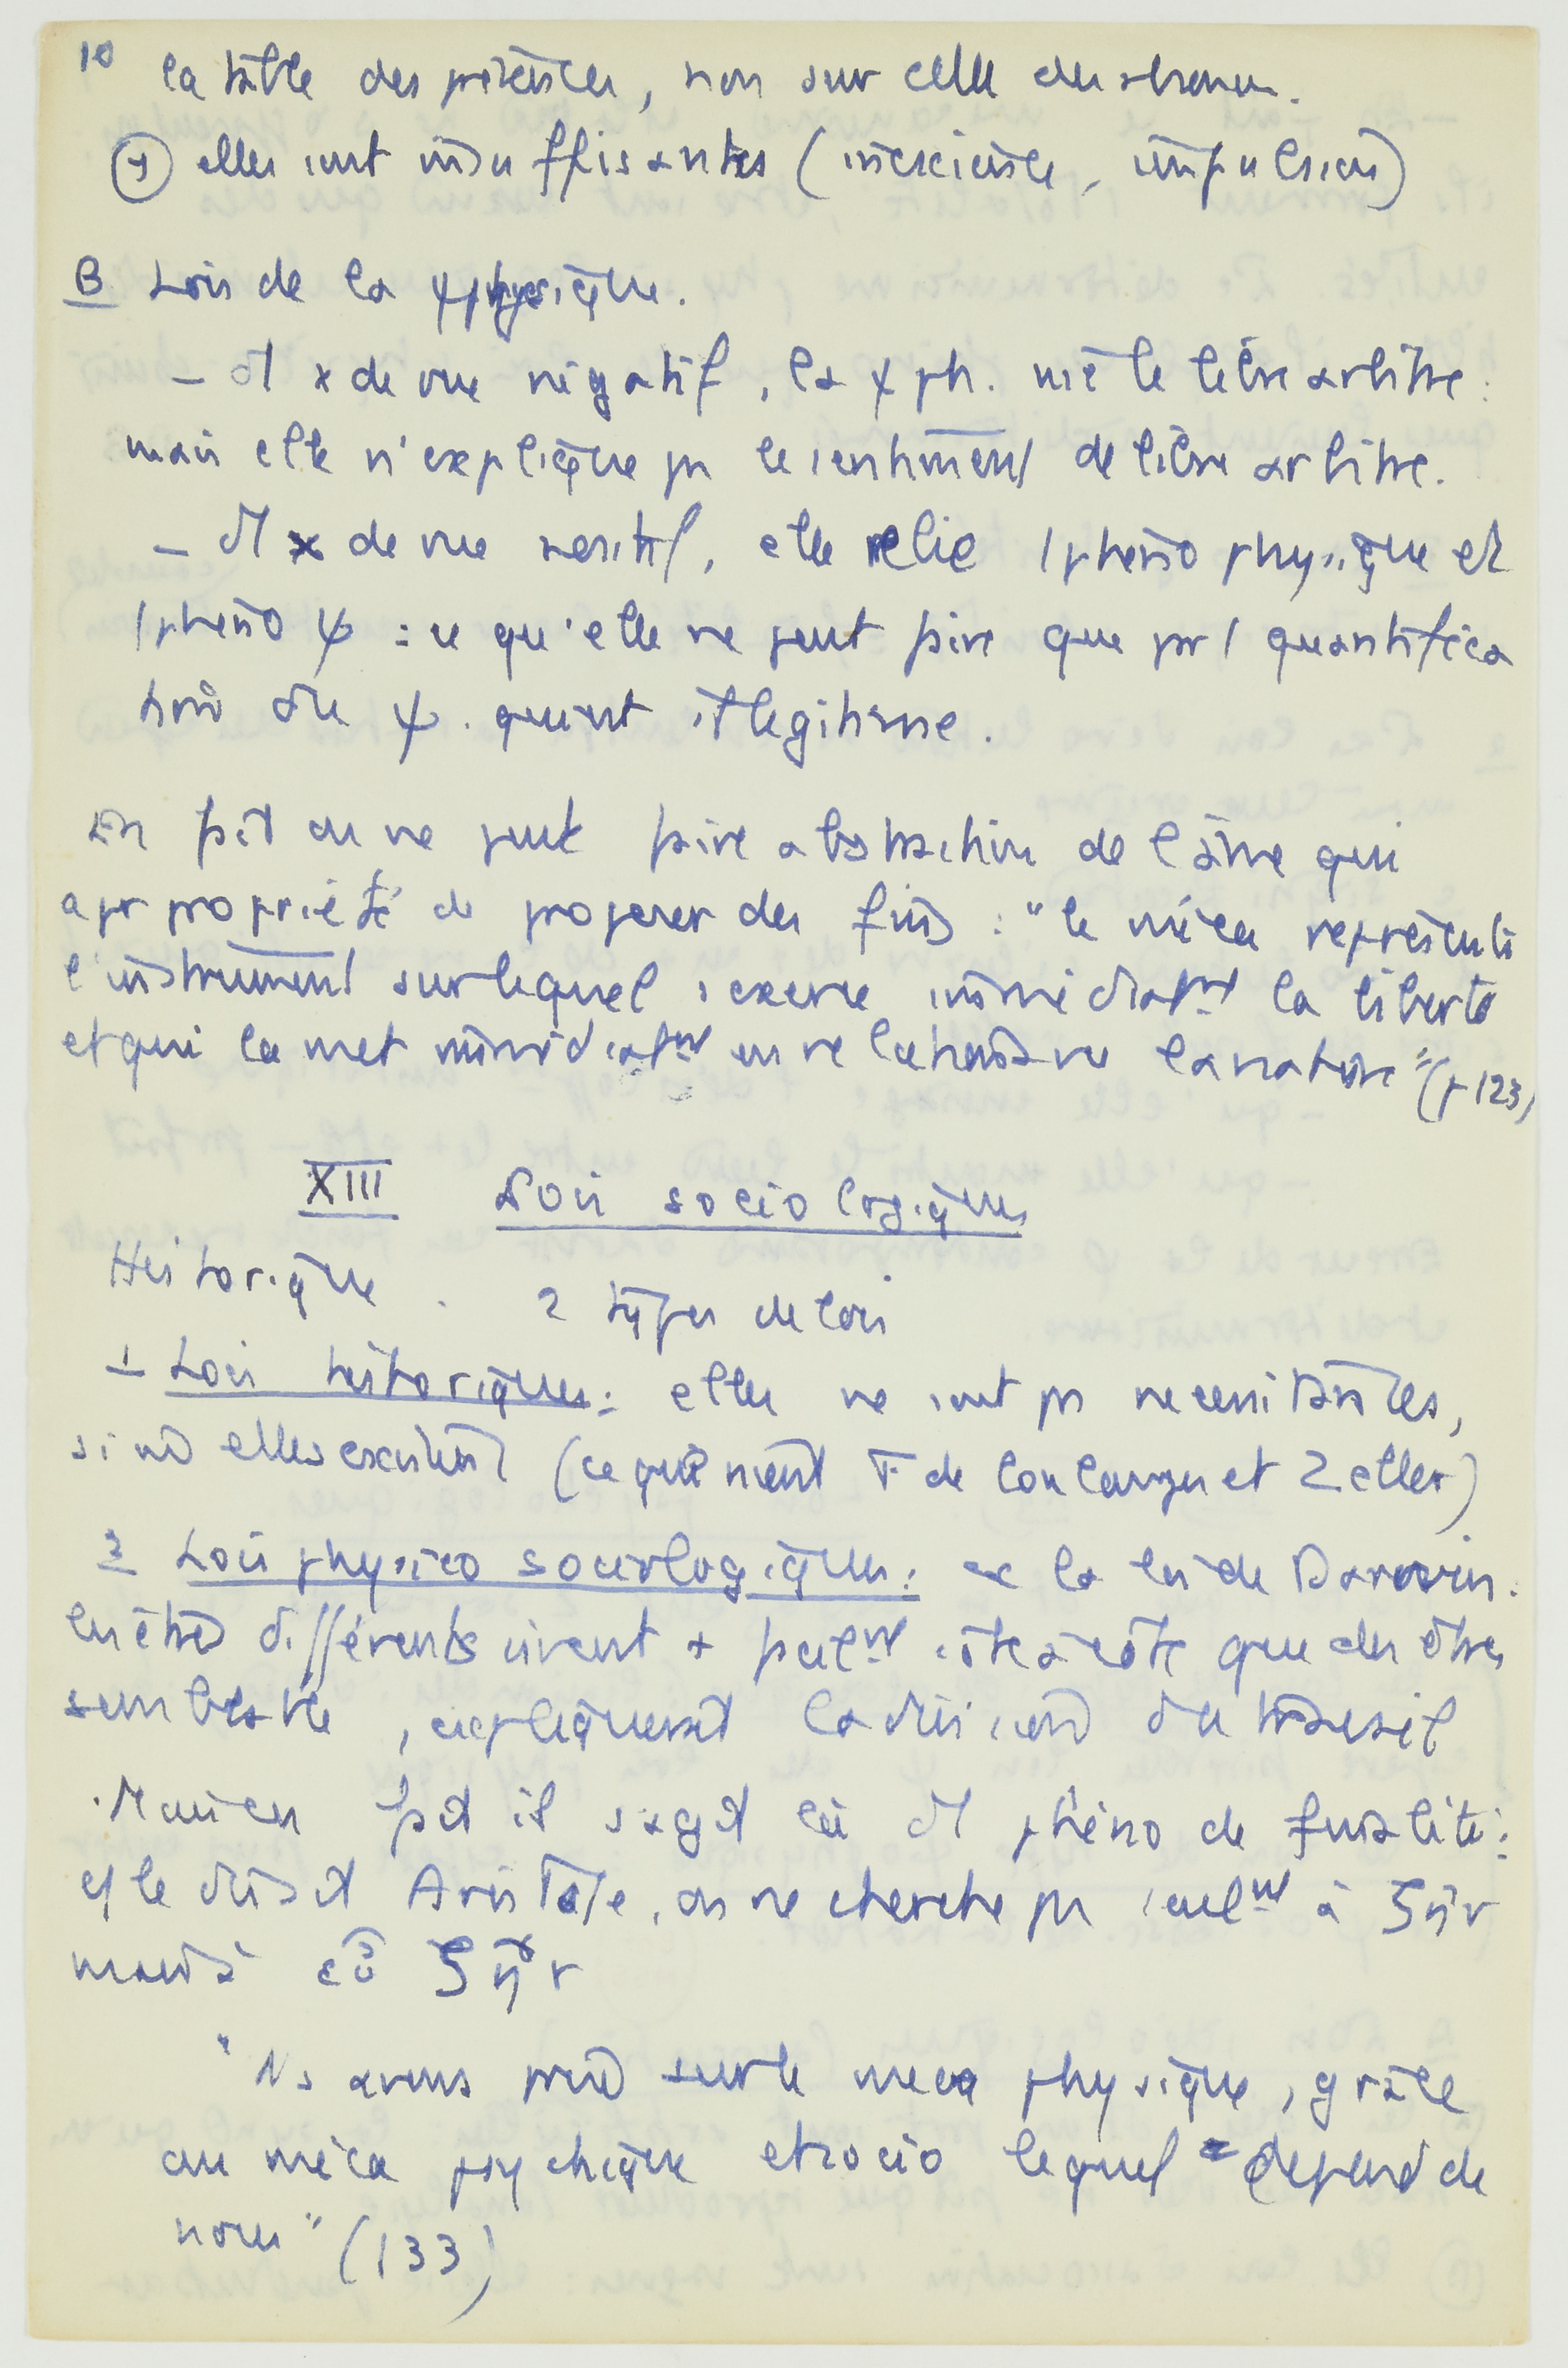 10 la table des présences, non sur celle des absences.
γ elles sont insuffisantes (inconscience, impulsion)
B Lois de la ψphysique.
– Du x de vue négatif, la ψ ph. nie le libre arbitre :
mais elle n'explique pas le sentiment de libre arbitre.
– Du x de vue positif, elle relie 1 phéno physique et
1 phéno ψ : ce qu'elle ne peut faire que par 1 quantifica
tion du ψ. qui est illégitime.
En fait on ne peut faire abstraction de l'âme qui
a pr propriété de proposer des fins : "le méca représente
l'instrument sur lequel s'exerce immédiatmt la liberté
et qui la met immédiatmt en relation avec la nature" (p 123)
XIII Lois sociologiques
Historique . 2 types de lois
1 Lois historiques : elles ne sont pas nécessitantes,
si tant est qu'elles existent (ce que nient F. de Coulanges et Zeller)
2 Lois physico sociologiques : ex la loi de Darwin.
les êtres différents vivent + facilmt côte à côte que des êtres
semblables, expliquerait la division du travail
Mais en fait il s'agit là du phéno de finalité :
c/ le disait Aristote, on ne cherche pas seulmt à ζῆν
mais à εὖ ζῆν
"Ns avons prise sur le méca physique, grâce
au méca psychique et socio lequel dépend de
nous" (133)